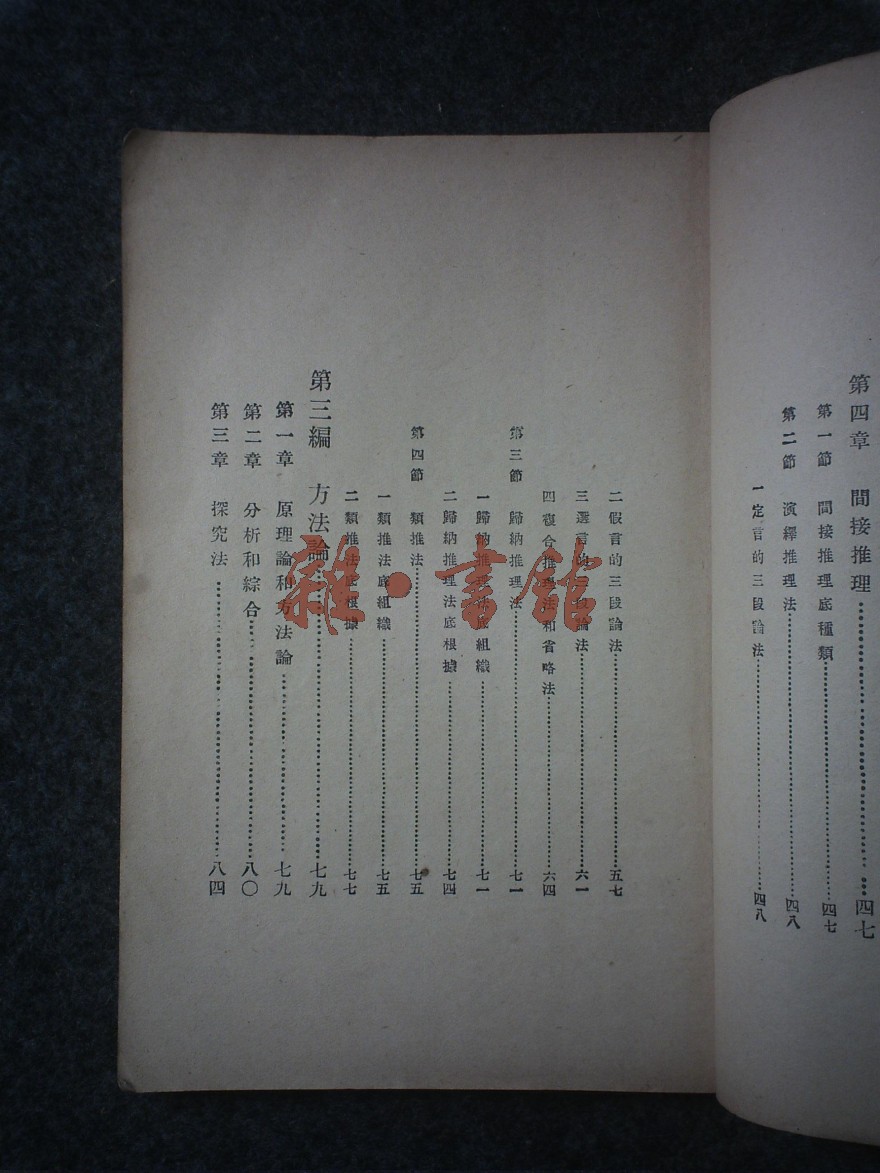 第四章　間接推理……四七
第一節　間接推理底種類……四七
第二節　演繹推理法……四八
一定言的三段論法……四八
二假言的三段論法……五七
三選言的三段論法……六一
四複合推理法和省略法……六四
第三節　歸納推理法……七一
一歸納推理法底組織……七一
二歸納推理法底根據……七四
第四節　類推法……七五
一類推法底組織……七五
二類推法底根據……七七
第三編　方法論……七九
第一章　原理論和方法論……七九
第二章　分析和綜合……八〇
第三章　探究法……八四
雜·書館